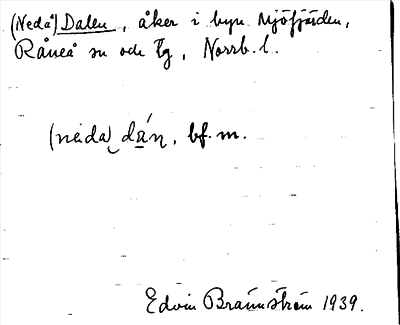 (Nedå) Dalen, åker i byn Mjöfjärden,
Råneå sn och tg, Norrb. l.
(neda dán, bf. m.
Edvin Brännström 1939.